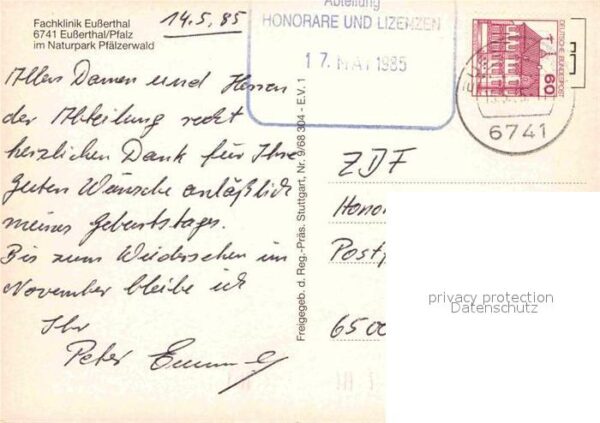 Fachklinik Eußerthal
6741 Eußerthal/Pfalz
im Naturpark Pfälzerwald
14.5.85
Allen Damen und Herren
der Abteilung recht
herzlichen Dank für Ihre
guten Wünsche anläßlich
meines Geburtstages.
Bis zum Wiedersehen im
November bleibe ich
Ihr
Peter
Freigegeb. d. Reg.-Präs. Stuttgart, Nr. 9/68 304 - E.V. 1
Abteilung
HONORARE UND LIZENZEN
17. MAI 1985
DEUTSCHE BUNDESPOST
60
6741
ZDF
Hono
Post
6500
privacy protection
Datenschutz